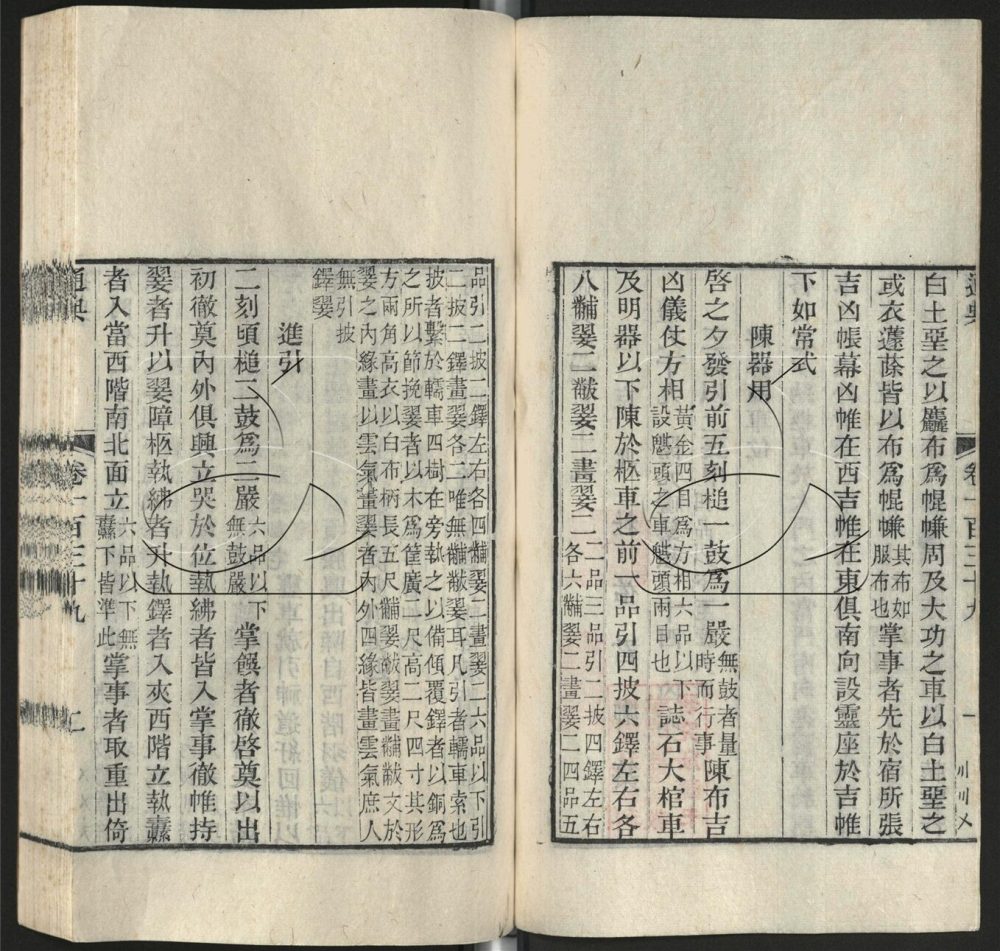 白土堊之以麤布爲幰㡘周及大功之車以白土堊之
或衣蘧蒢皆以布爲幰㡘其布如服布也掌事者先於宿所張
吉凶帳幕凶帷在西吉帷在東俱南向設靈座於吉帷
下如常式
陳器用
啓之夕發引前五刻槌一鼓爲一嚴無鼓者量時而行事陳布吉
凶儀仗方相黃金四目爲方相六品以下設魌頭之車魌頭兩目也凶誌石大棺車
及明器以下陳於柩車之前一品引四披六鐸左右各
八黼翣二黻翣二畫翣二二品三品引二披四鐸左右各六黼翣二畫翣二四品五
品引二披二鐸左右各四黼翣二畫翣二六品以下引
二披二鐸畫翣各二唯無黼黻翣耳凡引者轜車索也
披者繫於轜車四樹在旁執之以備傾覆鐸者以銅爲
之所以節挽翣者以木爲筐廣二尺高二尺四寸其形
方兩角高衣以白布柄長五尺黼翣黻翣畫黼黻文於
翣之內緣畫以雲氣畫翣者內外四緣皆畫雲氣庶人
無引披鐸翣
進引
二刻頃槌二鼓爲二嚴六品以下無鼓嚴掌饌者徹啓奠以出
初徹奠內外俱興立哭於位執紼者皆入掌事徹帷持
翣者升以翣障柩執紼者升執鐸者入夾西階立執纛
者入當西階南北面立六品以下無纛下皆準此掌事者取重出倚
通典
卷一百三十九
一
通典
卷一百三十九